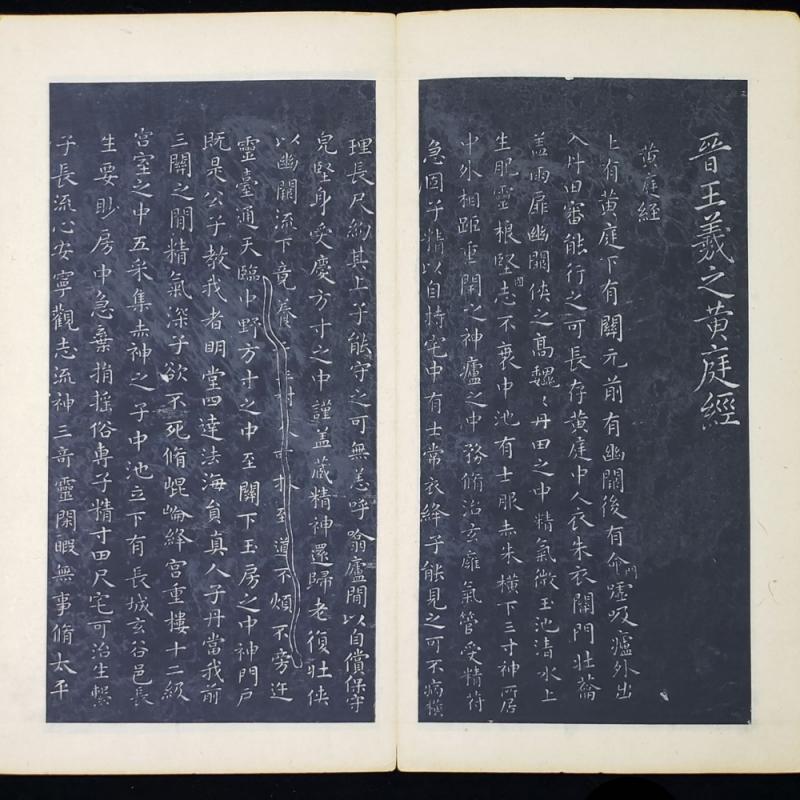 晉王羲之黄庭經
黄庭経
上有黄庭下有關元前有幽關後有命門嘘吸廬外出
入丹田審能行之可長存黄庭中人衣朱衣關門壮蘥
盖兩扉幽關侠之髙巍〻丹田之中精氣微玉池清水上
生肥靈根堅志不衰中池有士服赤朱横下三寸神所居
中外相距重閇之神廬之中務脩治玄廱氣管受精苻
急固子精以自持宅中有士常衣絳子能見之可不病横
理長尺約其上子能守之可無恙呼噏廬閒以自償保守
皃堅身受慶方寸之中謹盖藏精神還歸老復壮侠
以幽闕流下竟養至道不煩不旁迕
靈臺通天臨中野方寸之中至關下玉房之中神門戶
既是公子教我者明堂四達法海負真人子丹當我前
三關之閒精氣深子欲不死脩崐崘絳宮重樓十二級
宮室之中五采集赤神之子中池立下有長城玄谷邑長
生要眇房中急棄捐搖俗專子精寸田尺宅可治生繫
子長流心安寧觀志流神三奇靈閑暇無事脩太平